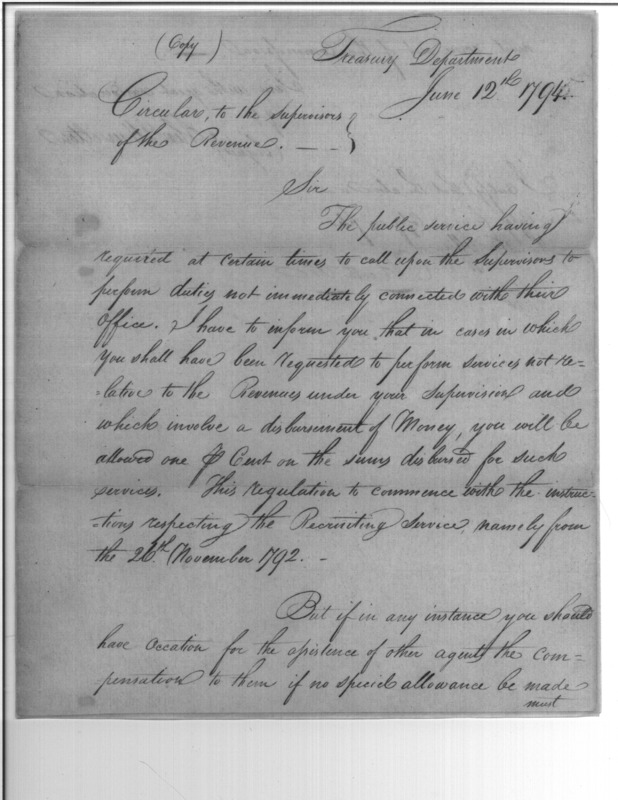 (Copy)
Treasury Department
June 12th 1794.
Circular, to the Supervisors
of the Revenue. — —
Sir
The public service having
required at certain times to call upon the Supervisors to
perform duties not immediately connected with their
Office. I have to inform you that in cases in which
you shall have been requested to perform services not re=
=lative to the Revenues under your Supervision and
which involve a disbursement of Money, you will be
allowed one ⅌ Cent on the sums disbursed for such
services. This regulation to commence with the instruc=
=tions respecting the Recruiting Service, namely from
the 26th November 1792. -
But if in any instance you should
have occation for the assistence of other agents the com=
=pensation to them if no special allowance be made
must